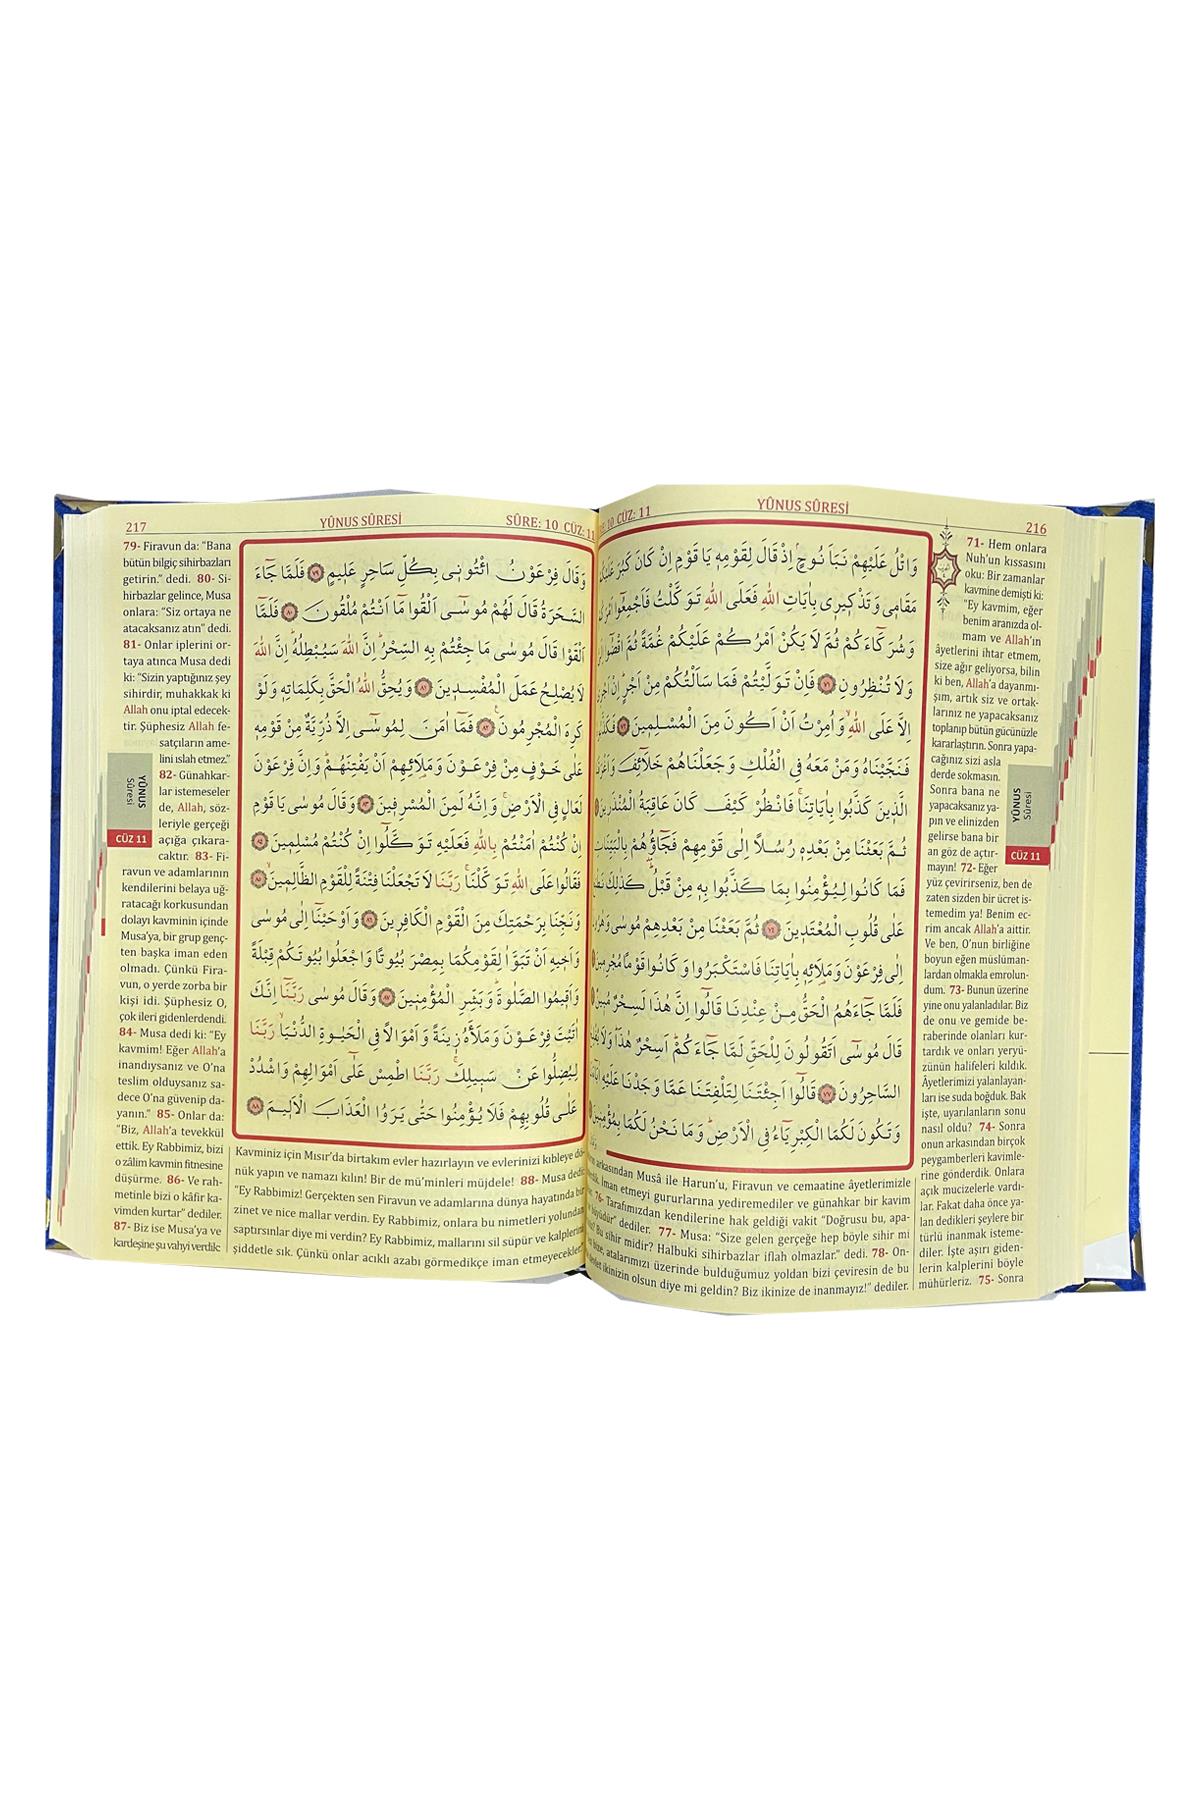 SÛRE: 10 CÜZ: 11
YÛNUS SÛRESİ
216
وَاتْلُ عَلَيْهِمْ نَبَاَ نُوحٍۢ اِذْ قَالَ لِقَوْمِهٖ يَا قَوْمِ اِنْ كَانَ كَبُرَ عَلَيْكُمْ
مَقَامٖى وَتَذْكٖيرٖى بِاٰيَاتِ اللّٰهِ فَعَلَى اللّٰهِ تَوَكَّلْتُ فَاَجْمِعُٓوا اَمْرَكُمْ
وَشُرَكَٓاءَكُمْ ثُمَّ لَا يَكُنْ اَمْرُكُمْ عَلَيْكُمْ غُمَّةً ثُمَّ اقْضُٓوا اِلَىَّ
وَلَا تُنْظِرُونِ ﴿٧١﴾ فَاِنْ تَوَلَّيْتُمْ فَمَا سَاَلْتُكُمْ مِنْ اَجْرٍۜ اِنْ اَجْرِىَ
اِلَّا عَلَى اللّٰهِۙ وَاُمِرْتُ اَنْ اَكُونَ مِنَ الْمُسْلِمٖينَ ﴿٧٢﴾ فَكَذَّبُوهُ
فَنَجَّيْنَاهُ وَمَنْ مَعَهُ فِى الْفُلْكِ وَجَعَلْنَاهُمْ خَلَٓائِفَ وَاَغْرَقْنَا
الَّذٖينَ كَذَّبُوا بِاٰيَاتِنَاۚ فَانْظُرْ كَيْفَ كَانَ عَاقِبَةُ الْمُنْذَرٖينَ
ثُمَّ بَعَثْنَا مِنْ بَعْدِهٖ رُسُلًا اِلٰى قَوْمِهِمْ فَجَٓاؤُ۫هُمْ بِالْبَيِّنَاتِ
فَمَا كَانُوا لِيُؤْمِنُوا بِمَا كَذَّبُوا بِهٖ مِنْ قَبْلُۜ كَذٰلِكَ نَطْبَعُ
عَلٰى قُلُوبِ الْمُعْتَدٖينَ ﴿٧٤﴾ ثُمَّ بَعَثْنَا مِنْ بَعْدِهِمْ مُوسٰى وَهٰرُونَ
اِلٰى فِرْعَوْنَ وَمَلَا۬ئِهٖ بِاٰيَاتِنَا فَاسْتَكْبَرُوا وَكَانُوا قَوْمًا مُجْرِمٖينَ
فَلَمَّا جَٓاءَهُمُ الْحَقُّ مِنْ عِنْدِنَا قَالُٓوا اِنَّ هٰذَا لَسِحْرٌ مُبٖينٌ
قَالَ مُوسٰٓى اَتَقُولُونَ لِلْحَقِّ لَمَّا جَٓاءَكُمْۜ اَسِحْرٌ هٰذَاۜ وَلَا يُفْلِحُ
السَّاحِرُونَ ﴿٧٧﴾ قَالُٓوا اَجِئْتَنَا لِتَلْفِتَنَا عَمَّا وَجَدْنَا عَلَيْهِ اٰبَٓاءَنَا
وَتَكُونَ لَكُمَا الْكِبْرِيَٓاءُ فِى الْاَرْضِۜ وَمَا نَحْنُ لَكُمَا بِمُؤْمِنٖينَ
71- Hem onlara
Nuh'un kıssasını
oku: Bir zamanlar
kavmine demişti ki:
"Ey kavmim, eğer
benim aranızda ol-
mam ve Allah'ın
âyetlerini ihtar etmem,
size ağır geliyorsa, bilin
ki ben, Allah'a dayanmı-
şım, artık siz ve ortak-
larınız ne yapacaksanız
toplanıp bütün gücünüzle
kararlaştırın. Sonra yapa-
cağınız sizi asla
derde sokmasın.
Sonra bana ne
yapacaksanız ya-
pın ve elinizden
gelirse bana bir
an göz de açtır-
mayın! 72- Eğer
yüz çevirirseniz, ben de
zaten sizden bir ücret is-
temedim ya! Benim ec-
rim ancak Allah'a aittir.
Ve ben, O'nun birliğine
boyun eğen müslüman-
lardan olmakla emrolun-
dum. 73- Bunun üzerine
yine onu yalanladılar. Biz
de onu ve gemide be-
raberinde olanları kur-
tardık ve onları yeryü-
zünün halifeleri kıldık.
Âyetlerimizi yalanlayan-
ları ise suda boğduk. Bak
işte, uyarılanların sonu
nasıl oldu? 74- Sonra
onun arkasından birçok
peygamberleri kavimle-
rine gönderdik. Onlara
açık mucizelerle vardı-
lar. Fakat daha önce ya-
lan dedikleri şeylere bir
türlü inanmak isteme-
diler. İşte aşırı giden-
lerin kalplerini böyle
mühürleriz. 75- Sonra
arkasından Musâ ile Harun'u, Firavun ve cemaatine âyetlerimizle
İman etmeyi gururlarına yediremediler ve günahkar bir kavim
76- Tarafımızdan kendilerine hak geldiği vakit "Doğrusu bu, apa-
büyüdür" dediler. 77- Musa: "Size gelen gerçeğe hep böyle sihir mi
Bu sihir midir? Halbuki sihirbazlar iflah olmazlar." dedi. 78- On-
bize, atalarımızı üzerinde bulduğumuz yoldan bizi çeviresin de bu
ikinizin olsun diye mi geldin? Biz ikinize de inanmayız!" dediler.
YÛNUS
Sûresi
CÜZ 11
217
YÛNUS SÛRESİ
SÛRE: 10 CÜZ: 11
وَقَالَ فِرْعَوْنُ ائْتُونٖى بِكُلِّ سَاحِرٍ عَلٖيمٍ ﴿٧٩﴾ فَلَمَّا جَٓاءَ
السَّحَرَةُ قَالَ لَهُمْ مُوسٰٓى اَلْقُوا مَٓا اَنْتُمْ مُلْقُونَ ﴿٨٠﴾ فَلَمَّٓا
اَلْقَوْا قَالَ مُوسٰى مَا جِئْتُمْ بِهِ السِّحْرُۜ اِنَّ اللّٰهَ سَيُبْطِلُهُۜ اِنَّ اللّٰهَ
لَا يُصْلِحُ عَمَلَ الْمُفْسِدٖينَ ﴿٨١﴾ وَيُحِقُّ اللّٰهُ الْحَقَّ بِكَلِمَاتِهٖ وَلَوْ
كَرِهَ الْمُجْرِمُونَ۟ ﴿٨٢﴾ فَمَٓا اٰمَنَ لِمُوسٰٓى اِلَّا ذُرِّيَّةٌ مِنْ قَوْمِهٖ
عَلٰى خَوْفٍ مِنْ فِرْعَوْنَ وَمَلَا۬ئِهِمْ اَنْ يَفْتِنَهُمْۜ وَاِنَّ فِرْعَوْنَ
لَعَالٍ فِى الْاَرْضِۚ وَاِنَّهُ لَمِنَ الْمُسْرِفٖينَ ﴿٨٣﴾ وَقَالَ مُوسٰى يَا قَوْمِ
اِنْ كُنْتُمْ اٰمَنْتُمْ بِاللّٰهِ فَعَلَيْهِ تَوَكَّلُٓوا اِنْ كُنْتُمْ مُسْلِمٖينَ ﴿٨٤﴾
فَقَالُوا عَلَى اللّٰهِ تَوَكَّلْنَاۚ رَبَّنَا لَا تَجْعَلْنَا فِتْنَةً لِلْقَوْمِ الظَّالِمٖينَۙ ﴿٨٥﴾
وَنَجِّنَا بِرَحْمَتِكَ مِنَ الْقَوْمِ الْكَافِرٖينَ ﴿٨٦﴾ وَاَوْحَيْنَٓا اِلٰى مُوسٰى
وَاَخٖيهِ اَنْ تَبَوَّاٰ لِقَوْمِكُمَا بِمِصْرَ بُيُوتًا وَاجْعَلُوا بُيُوتَكُمْ قِبْلَةً
وَاَقٖيمُوا الصَّلٰوةَۜ وَبَشِّرِ الْمُؤْمِنٖينَ ﴿٨٧﴾ وَقَالَ مُوسٰى رَبَّنَٓا اِنَّكَ
اٰتَيْتَ فِرْعَوْنَ وَمَلَاَهُ زٖينَةً وَاَمْوَالًا فِى الْحَيٰوةِ الدُّنْيَاۙ رَبَّنَا
لِيُضِلُّوا عَنْ سَبٖيلِكَۚ رَبَّنَا اطْمِسْ عَلٰٓى اَمْوَالِهِمْ وَاشْدُدْ
عَلٰى قُلُوبِهِمْ فَلَا يُؤْمِنُوا حَتّٰى يَرَوُا الْعَذَابَ الْاَلٖيمَ ﴿٨٨﴾
79- Firavun da: "Bana
bütün bilgiç sihirbazları
getirin." dedi. 80- Si-
hirbazlar gelince, Musa
onlara: "Siz ortaya ne
atacaksanız atın" dedi.
81- Onlar iplerini or-
taya atınca Musa dedi
ki: "Sizin yaptığınız şey
sihirdir, muhakkak ki
Allah onu iptal edecek-
tir. Şüphesiz Allah fe-
satçıların ame-
lini ıslah etmez."
82- Günahkar-
lar istemeseler
de, Allah, söz-
leriyle gerçeği
açığa çıkara-
caktır. 83- Fi-
ravun ve adamlarının
kendilerini belaya uğ-
ratacağı korkusundan
dolayı kavminin içinde
Musa'ya, bir grup genç-
ten başka iman eden
olmadı. Çünkü Fira-
vun, o yerde zorba bir
kişi idi. Şüphesiz O,
çok ileri gidenlerdendi.
84- Musa dedi ki: "Ey
kavmim! Eğer Allah'a
inandıysanız ve O'na
teslim olduysanız sa-
dece O'na güvenip da-
yanın." 85- Onlar da:
"Biz, Allah'a tevekkül
ettik. Ey Rabbimiz, bizi
o zâlim kavmin fitnesine
düşürme. 86- Ve rah-
metinle bizi o kâfir ka-
vimden kurtar" dediler.
87- Biz ise Musa'ya ve
kardeşine şu vahyi verdik:
Kavminiz için Mısır'da birtakım evler hazırlayın ve evlerinizi kıbleye dö-
nük yapın ve namazı kılın! Bir de mü'minleri müjdele! 88- Musa dedi:
"Ey Rabbimiz! Gerçekten sen Firavun ve adamlarına dünya hayatında bir
zinet ve nice mallar verdin. Ey Rabbimiz, onlara bu nimetleri yolundan
saptırsınlar diye mi verdin? Ey Rabbimiz, mallarını sil süpür ve kalplerini
şiddetle sık. Çünkü onlar acıklı azabı görmedikçe iman etmeyecekler."
YÛNUS
Sûresi
CÜZ 11